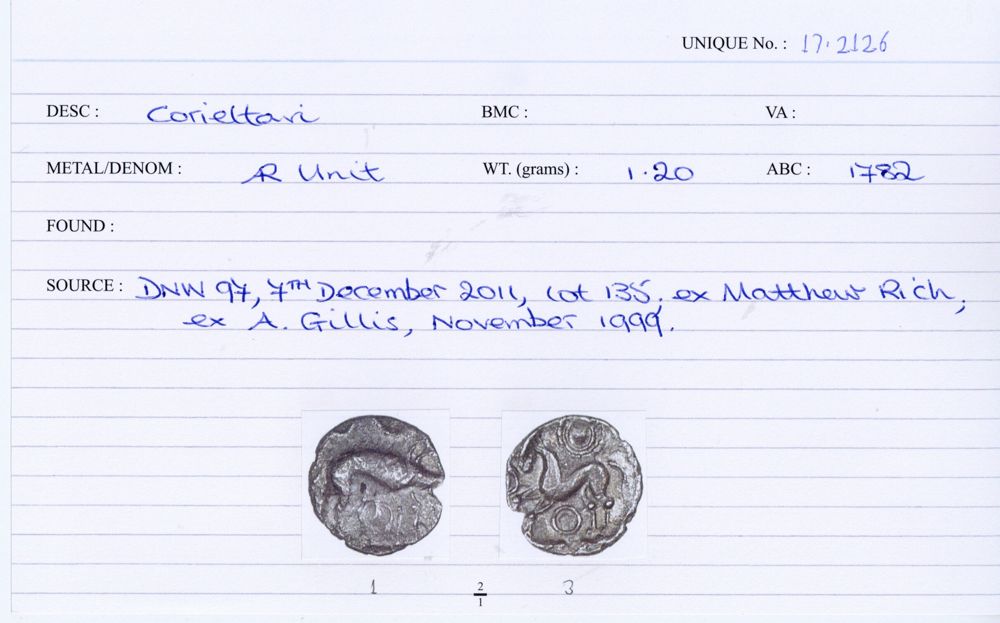 UNIQUE No. : 17.2126
DESC : Corieltavi BMC : VA :
METAL/DENOM : AR Unit WT. (grams) : 1.20 ABC : 1782
FOUND :
SOURCE : DNW 97, 7TH December 2011, lot 135, ex Matthew Rich,
ex A. Gillis, November 1999.
1 2/1 3